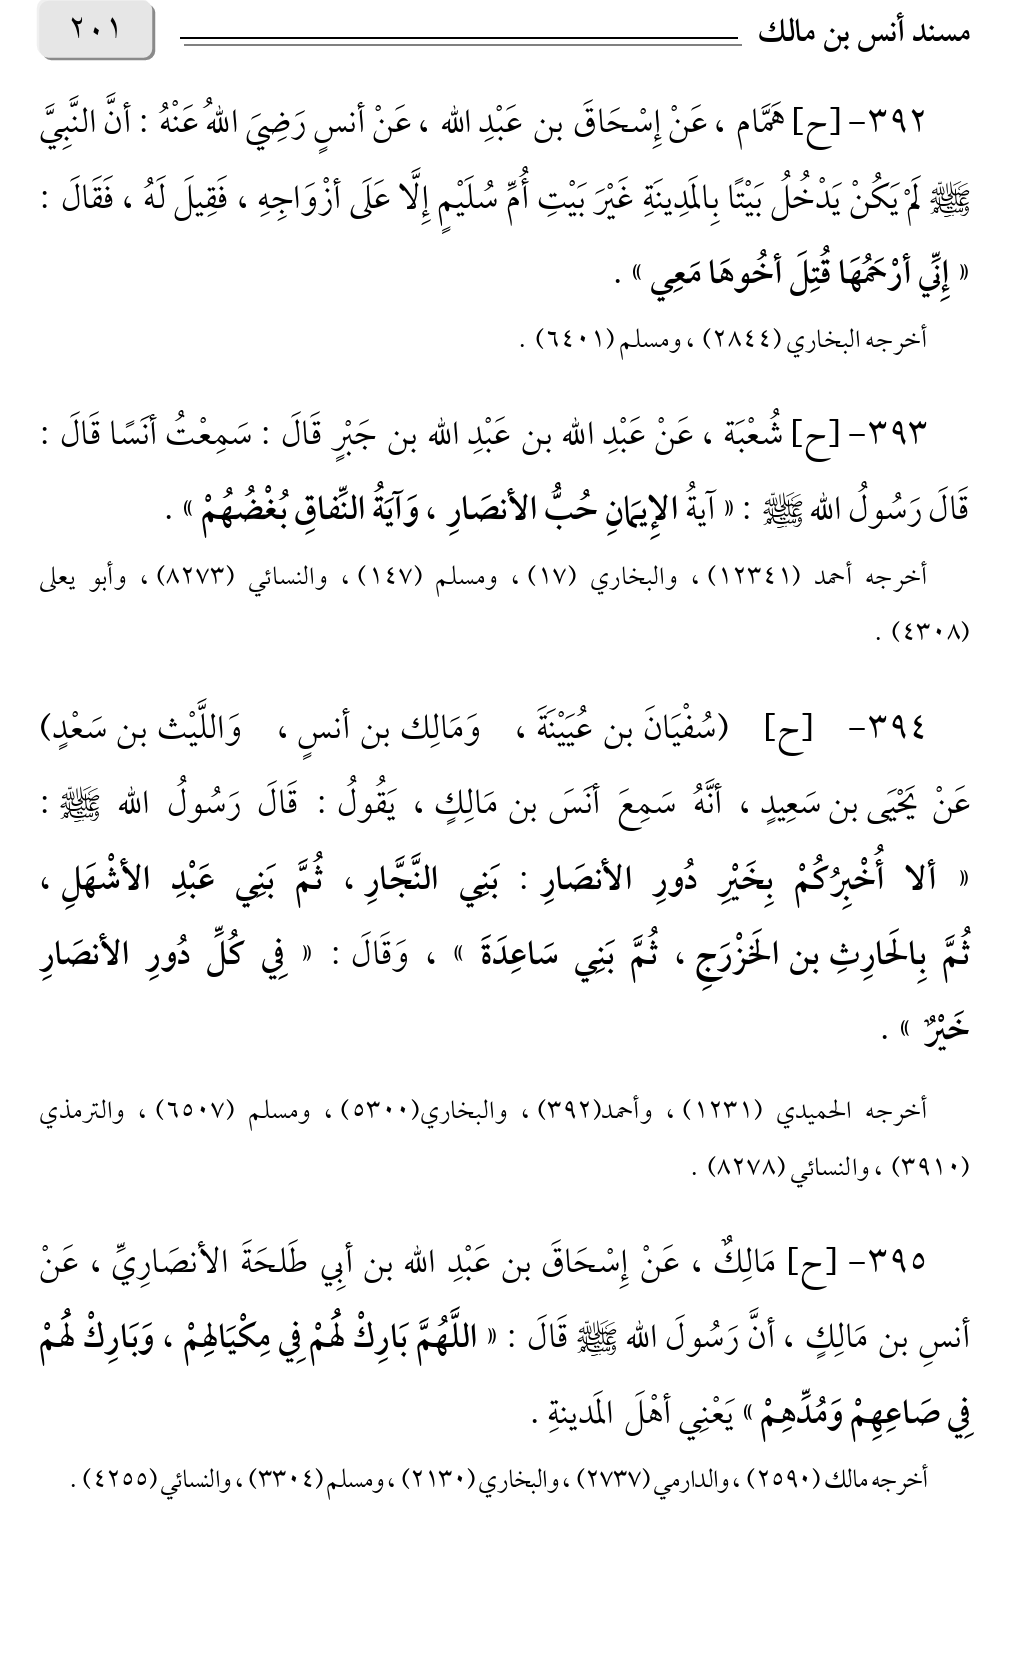 مسند أنس بن مالك ٢٠١
٣٩٢- [ح] هَمَّام ، عَنْ إِسْحَاقَ بن عَبْدِ الله ، عَنْ أنسٍ رَضِيَ اللهُ عَنْهُ : أنَّ النَّبِيَّ
ﷺ لَمْ يَكُنْ يَدْخُلُ بَيْتًا بِالمَدِينَةِ غَيْرَ بَيْتِ أُمِّ سُلَيْمٍ إِلَّا عَلَى أزْوَاجِهِ ، فَقِيلَ لَهُ ، فَقَالَ :
« إِنِّي أرْحَمُهَا قُتِلَ أخُوهَا مَعِي » .
أخرجه البخاري (٢٨٤٤) ، ومسلم (٦٤٠١) .
٣٩٣- [ح] شُعْبَة ، عَنْ عَبْدِ الله بن عَبْدِ الله بن جَبْرٍ قَالَ : سَمِعْتُ أنَسًا قَالَ :
قَالَ رَسُولُ الله ﷺ : « آيةُ الإِيمَانِ حُبُّ الأنصَارِ ، وَآيَةُ النِّفاقِ بُغْضُهُمْ » .
أخرجه أحمد (١٢٣٤١) ، والبخاري (١٧) ، ومسلم (١٤٧) ، والنسائي (٨٢٧٣) ، وأبو يعلى
(٤٣٠٨) .
٣٩٤- [ح] (سُفْيَانَ بن عُيَيْنَةَ ، وَمَالِك بن أنسٍ ، وَاللَّيْث بن سَعْدٍ)
عَنْ يَحْيَى بن سَعِيدٍ ، أنَّهُ سَمِعَ أنَسَ بن مَالِكٍ ، يَقُولُ : قَالَ رَسُولُ الله ﷺ :
« ألا أُخْبِرُكُمْ بِخَيْرِ دُورِ الأنصَارِ : بَنِي النَّجَّارِ ، ثُمَّ بَنِي عَبْدِ الأشْهَلِ ،
ثُمَّ بِالحَارِثِ بن الخَزْرَجِ ، ثُمَّ بَنِي سَاعِدَةَ » ، وَقَالَ : « فِي كُلِّ دُورِ الأنصَارِ
خَيْرٌ » .
أخرجه الحميدي (١٢٣١) ، وأحمد(٣٩٢) ، والبخاري(٥٣٠٠) ، ومسلم (٦٥٠٧) ، والترمذي
(٣٩١٠) ، والنسائي (٨٢٧٨) .
٣٩٥- [ح] مَالِكٌ ، عَنْ إِسْحَاقَ بن عَبْدِ الله بن أبِي طَلحَةَ الأنصَارِيِّ ، عَنْ
أنسِ بن مَالِكٍ ، أنَّ رَسُولَ الله ﷺ قَالَ : « اللَّهُمَّ بَارِكْ لَهُمْ فِي مِكْيَالِهِمْ ، وَبَارِكْ لَهُمْ
فِي صَاعِهِمْ وَمُدِّهِمْ » يَعْنِي أهْلَ المَدينةِ .
أخرجه مالك (٢٥٩٠) ، والدارمي (٢٧٣٧) ، والبخاري (٢١٣٠) ، ومسلم (٣٣٠٤) ، والنسائي (٤٢٥٥) .